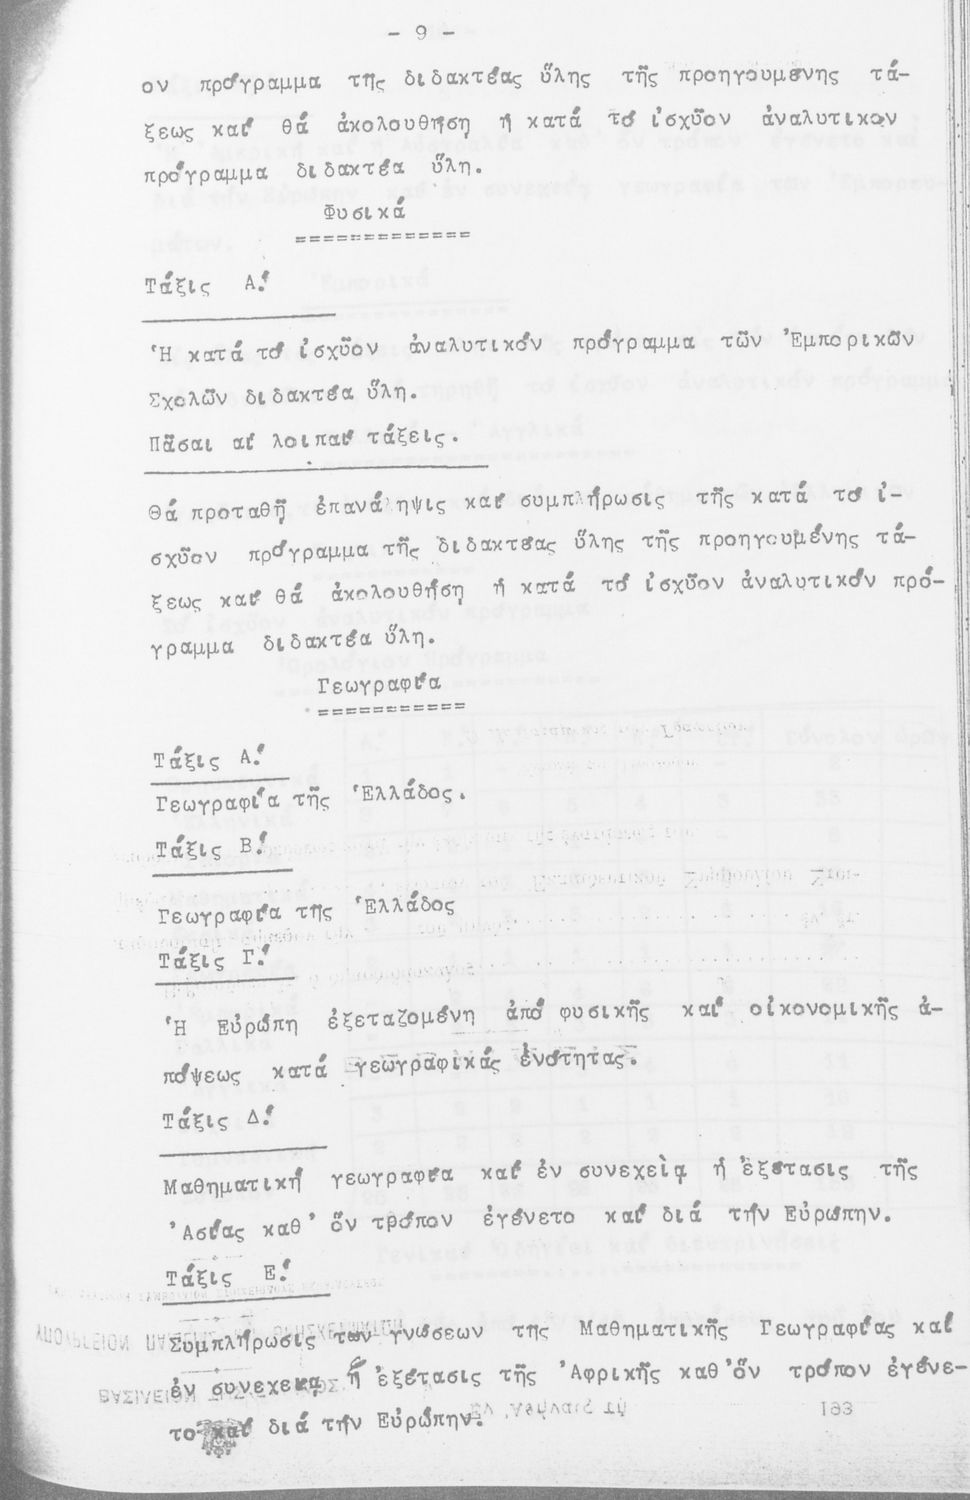 - 9 -
ον πρόγραμμα της διδακτέας ὕλης τῆς προηγουμένης τά-
ξεως καί θά ἀκολουθήση ἡ κατά τό ἰσχῦον ἀναλυτικον
πρόγραμμα διδακτέα ὕλη.
Φυσικά
Τάξις Α΄.
Ἡ κατά τό ἰσχῦον ἀναλυτικόν πρόγραμμα τῶν Ἐμπορικῶν
Σχολῶν διδακτέα ὕλη.
Πᾶσαι αἱ λοιπαί τάξεις.
Θά προταθῇ ἐπανάληψις καί συμπλήρωσις τῆς κατά τό ἰ-
σχῦον πρόγραμμα τῆς διδακτέας ὕλης τῆς προηγουμένης τά-
ξεως καί θά ἀκολουθήση ἡ κατά τό ἰσχῦον ἀναλυτικόν πρό-
γραμμα διδακτέα ὕλη.
Γεωγραφία
Τάξις Α΄.
Γεωγραφία τῆς Ἑλλάδος.
Τάξις Β΄.
Γεωγραφία της Ἑλλάδος
Τάξις Γ΄.
Ἡ Εὐρώπη ἐξεταζομένη ἀπό φυσικῆς καί οἰκονομικῆς ἀ-
πόψεως κατά γεωγραφικάς ἑνότητας.
Τάξις Δ΄.
Μαθηματική γεωγραφία καί ἐν συνεχείᾳ ἡ ἐξέτασις τῆς
Ἀσίας καθ' ὅν τρόπον ἐγένετο καί διά τήν Εὐρώπην.
Τάξις Ε΄.
Συμπλήρωσις των γνώσεων της Μαθηματικῆς Γεωγραφίας καί
ἐν συνεχεία ἡ ἐξέτασις τῆς Ἀφρικῆς καθ' ὅν τρόπον ἐγένε-
το καί διά τήν Εὐρώπην.